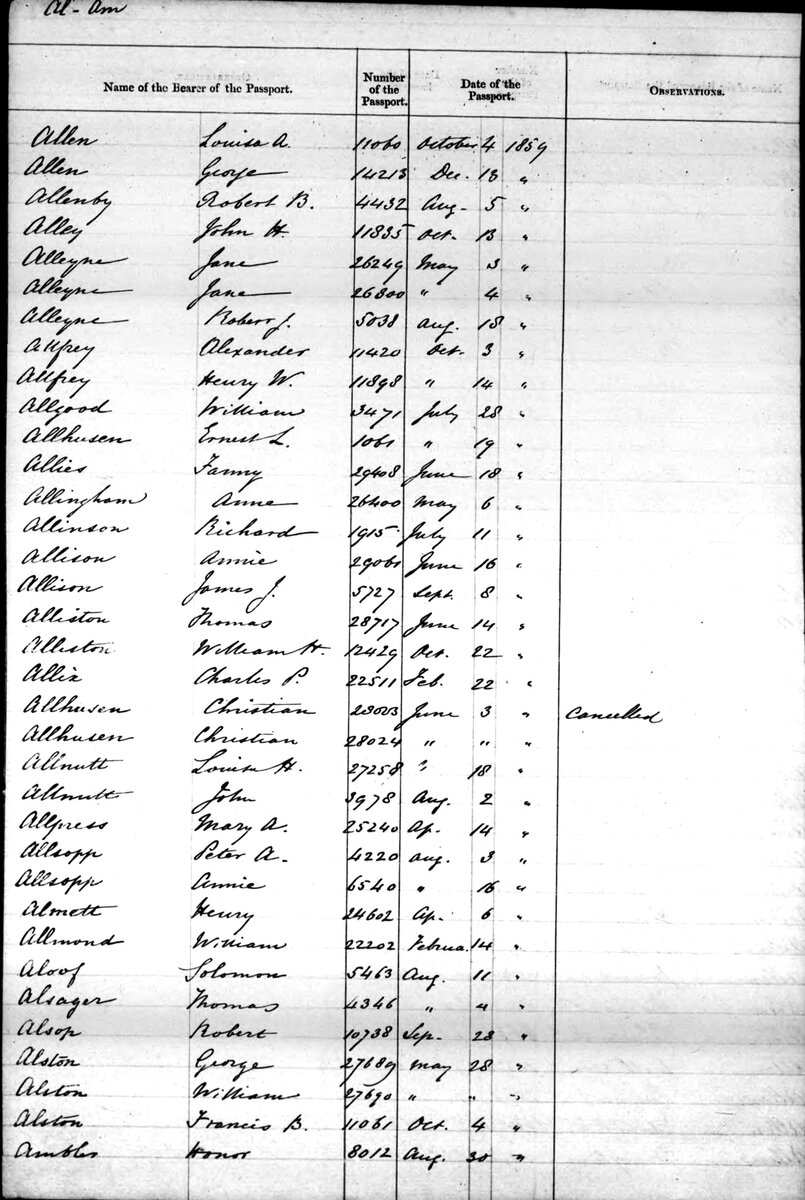 Al-Am
Name of the Bearer of the Passport. Number of the Passport. Date of the Passport. OBSERVATIONS.
Allen Louisa A. 11060 October 4 1859
Allen George 14213 Dec. 13 "
Allenby Robert B. 4432 Aug. 5 "
Alley John H. 11835 Oct. 13 "
Alleyne Jane 26249 May 3 "
Alleyne Jane 26300 " 4 "
Alleyne Robert J. 5038 Aug. 18 "
Allfrey Alexander 11420 Oct. 3 "
Allfrey Henry W. 11898 " 14 "
Allgood William 3471 July 28 "
Allhusen Ernest L. 1061 " 19 "
Allies Fanny 29408 June 18 "
Allingham Anne 26400 May 6 "
Allinson Richard 1915 July 11 "
Allison Annie 29061 June 16 "
Allison James J. 5727 Sept. 8 "
Alliston Thomas 28717 June 14 "
Alliston William H. 12429 Oct. 22 "
Allix Charles P. 22511 Feb. 22 "
Allhusen Christian 28023 June 3 " Cancelled
Allhusen Christian 28024 " " "
Allnutt Louisa H. 27258 " 18 "
Allnutt John 3978 Aug. 2 "
Allpress Mary A. 25240 Ap. 14 "
Allsopp Peter A. 4220 Aug. 3 "
Allsopp Annie 6540 " 16 "
Almett Henry 24602 Ap. 6 "
Allmond William 22202 Februa. 14 "
Aloof Solomon 5463 Aug. 11 "
Alsager Thomas 4346 " 4 "
Alsop Robert 10738 Sep. 28 "
Alston George 27689 May 28 "
Alston William 27690 " " "
Alston Francis B. 11061 Oct. 4 "
Ambler Honor 8012 Aug. 30 "